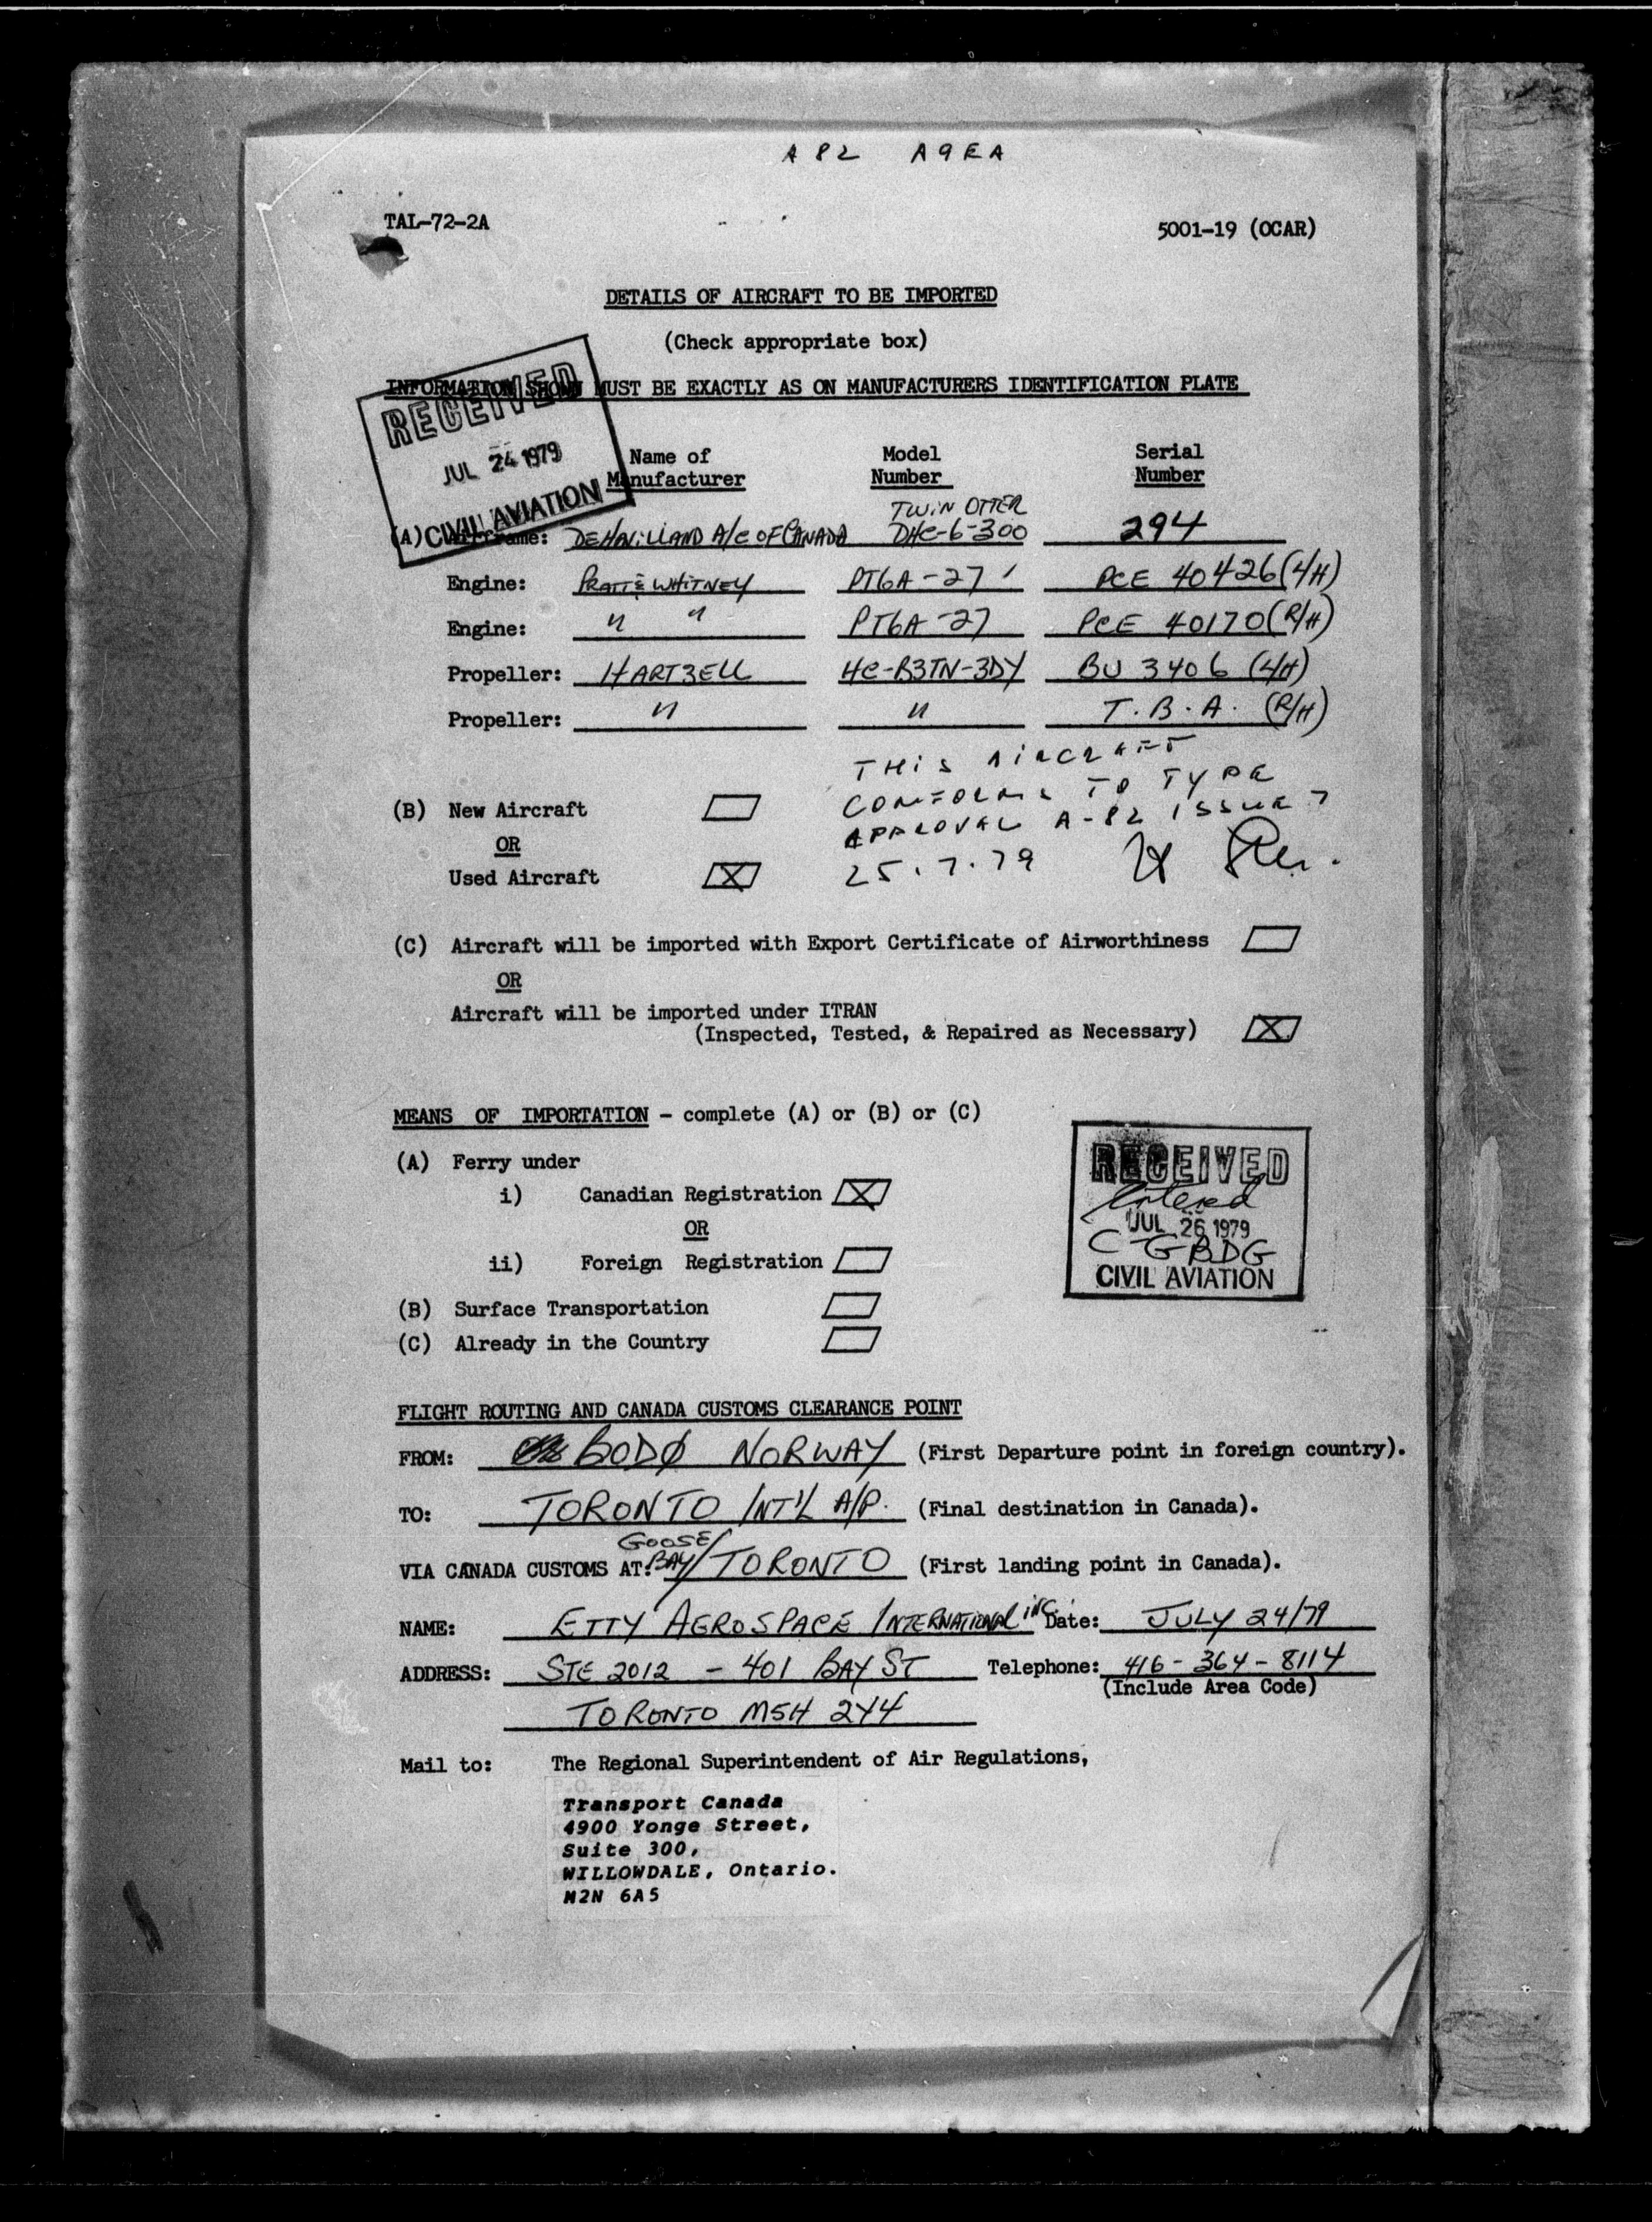 A82 A9EA
TAL-72-2A 5001-19 (OCAR)
DETAILS OF AIRCRAFT TO BE IMPORTED
(Check appropriate box)
INFORMATION SHOWN MUST BE EXACTLY AS ON MANUFACTURERS IDENTIFICATION PLATE
RECEIVED
JUL 24 1979
CIVIL AVIATION
Name of Model Serial
Manufacturer Number Number
TWIN OTTER
(A) Airframe: DEHAVILLAND A/C OF CANADA DHC-6-300 294
Engine: PRATT & WHITNEY PT6A-27 PCE 40426 (L/H)
Engine: " " PT6A-27 PCE 40170 (R/H)
Propeller: HARTZELL HC-B3TN-3DY BU 3406 (L/H)
Propeller: " " T.B.A. (R/H)
THIS AIRCRAFT
CONFORMS TO TYPE
APPROVAL A-82 ISSUE 7
25.7.79
(B) New Aircraft
OR
Used Aircraft X
(C) Aircraft will be imported with Export Certificate of Airworthiness
OR
Aircraft will be imported under ITRAN
(Inspected, Tested, & Repaired as Necessary) X
MEANS OF IMPORTATION - complete (A) or (B) or (C)
(A) Ferry under
i) Canadian Registration X
OR
ii) Foreign Registration
(B) Surface Transportation
(C) Already in the Country
RECEIVED
Entered
JUL 26 1979
C-GBDG
CIVIL AVIATION
FLIGHT ROUTING AND CANADA CUSTOMS CLEARANCE POINT
FROM: BODØ NORWAY (First Departure point in foreign country).
TO: TORONTO INT'L A/P. (Final destination in Canada).
VIA CANADA CUSTOMS AT: GOOSE BAY/TORONTO (First landing point in Canada).
NAME: ETTY AEROSPACE INTERNATIONAL INC. Date: JULY 24/79
ADDRESS: STE 2012 - 401 BAY ST Telephone: 416-364-8114
(Include Area Code)
TORONTO M5H 2Y4
Mail to: The Regional Superintendent of Air Regulations,
P.O. Box 7,
Transport Canada
4900 Yonge Street,
Suite 300,
WILLOWDALE, Ontario.
M2N 6A5